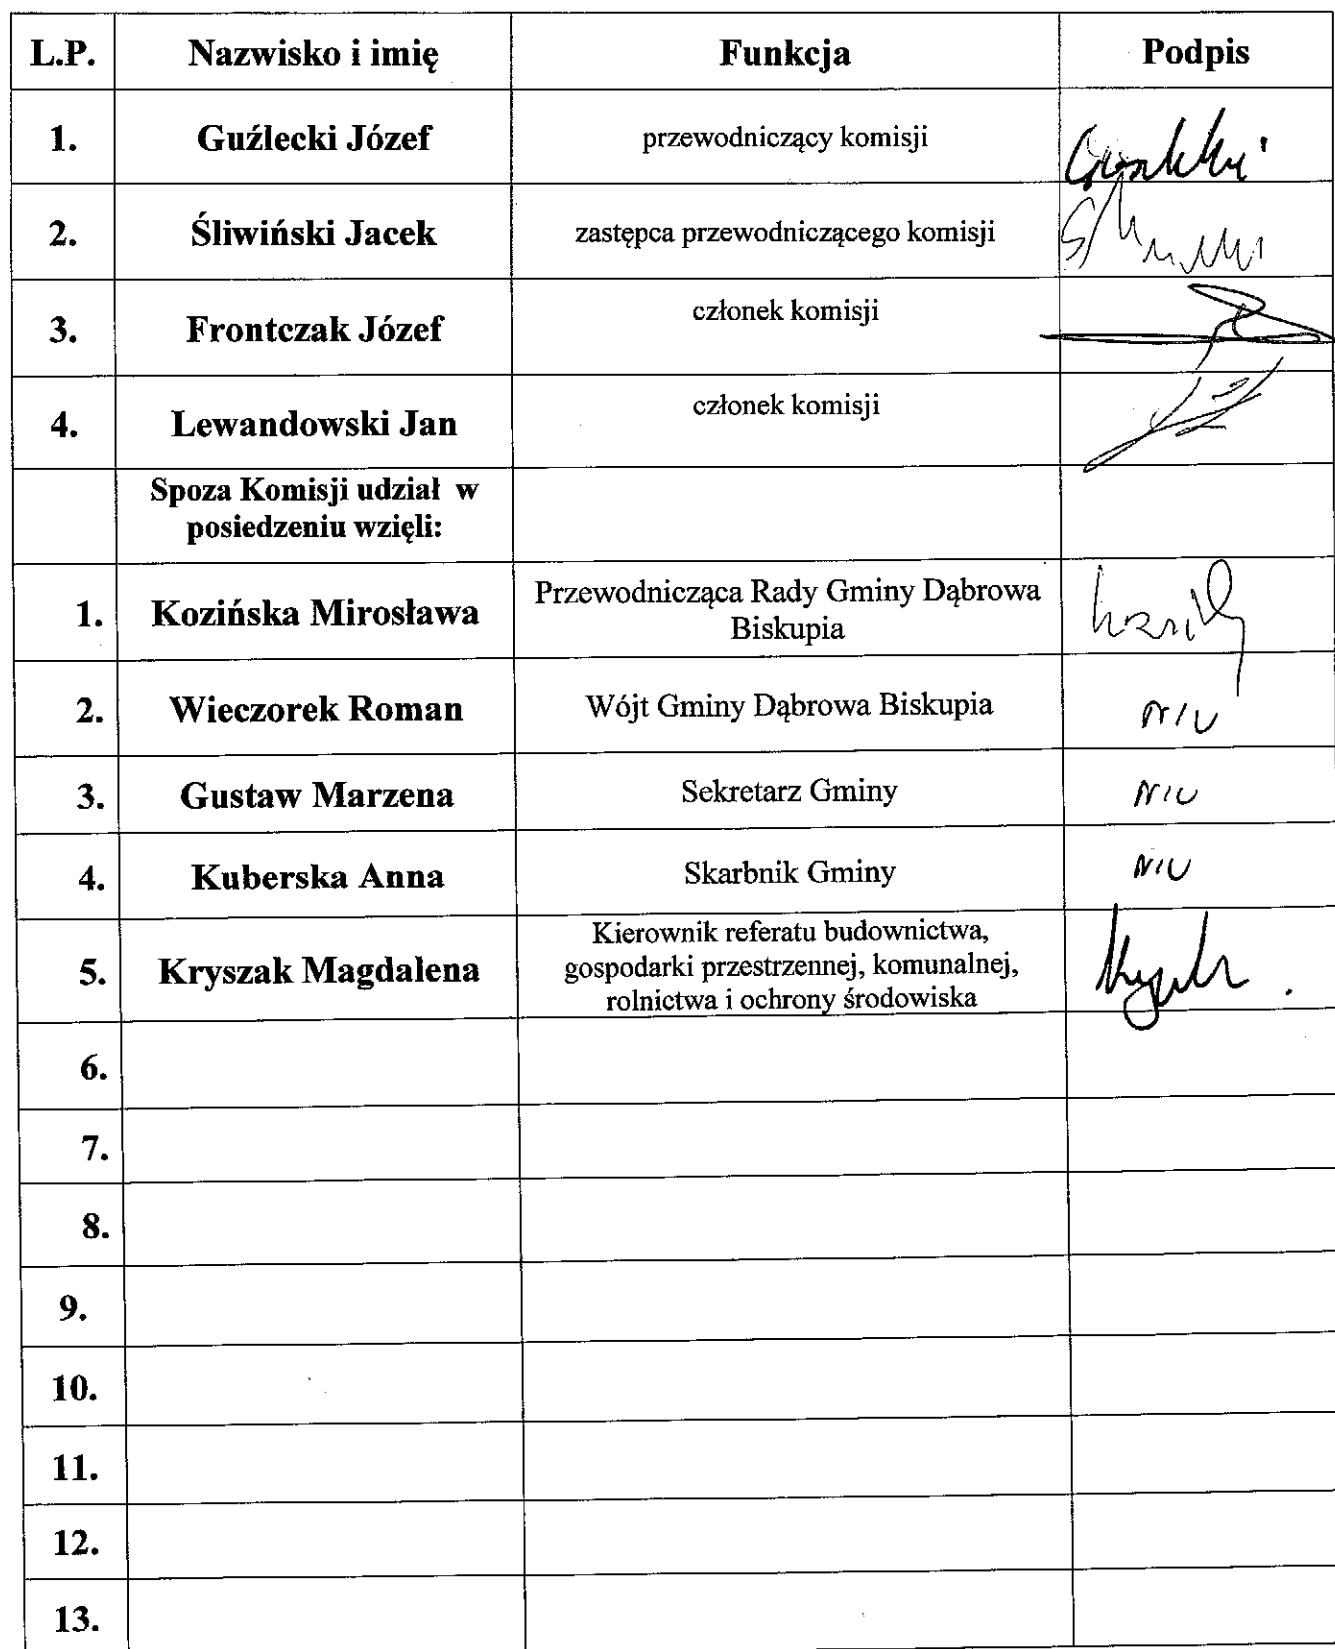 L.P. Nazwisko i imię Funkcja Podpis
1. Guźlecki Józef przewodniczący komisji
2. Śliwiński Jacek zastępca przewodniczącego komisji
3. Frontczak Józef członek komisji
4. Lewandowski Jan członek komisji
Spoza Komisji udział w
posiedzeniu wzięli:
1. Kozińska Mirosława Przewodnicząca Rady Gminy Dąbrowa
Biskupia
2. Wieczorek Roman Wójt Gminy Dąbrowa Biskupia N/U
3. Gustaw Marzena Sekretarz Gminy N/U
4. Kuberska Anna Skarbnik Gminy N/U
Kierownik referatu budownictwa,
5. Kryszak Magdalena gospodarki przestrzennej, komunalnej,
rolnictwa i ochrony środowiska
6.
7.
8.
9.
10.
11.
12.
13.